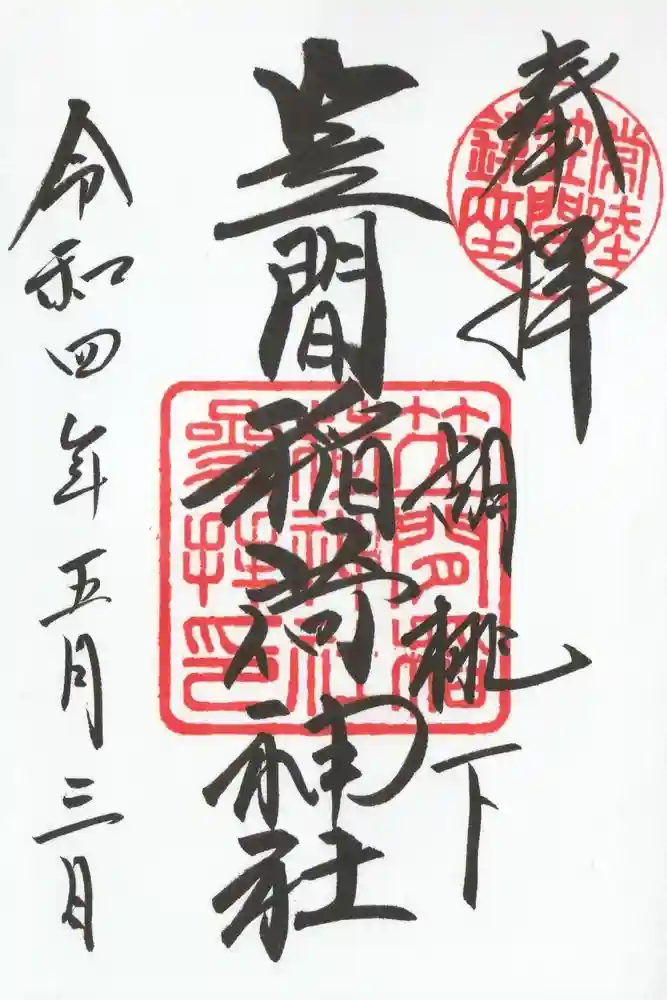 奉拝
常陸
笠間
鎮座
胡桃下
笠間稲荷神社
笠間稲
荷神社
參拝印
令和四年五月三日